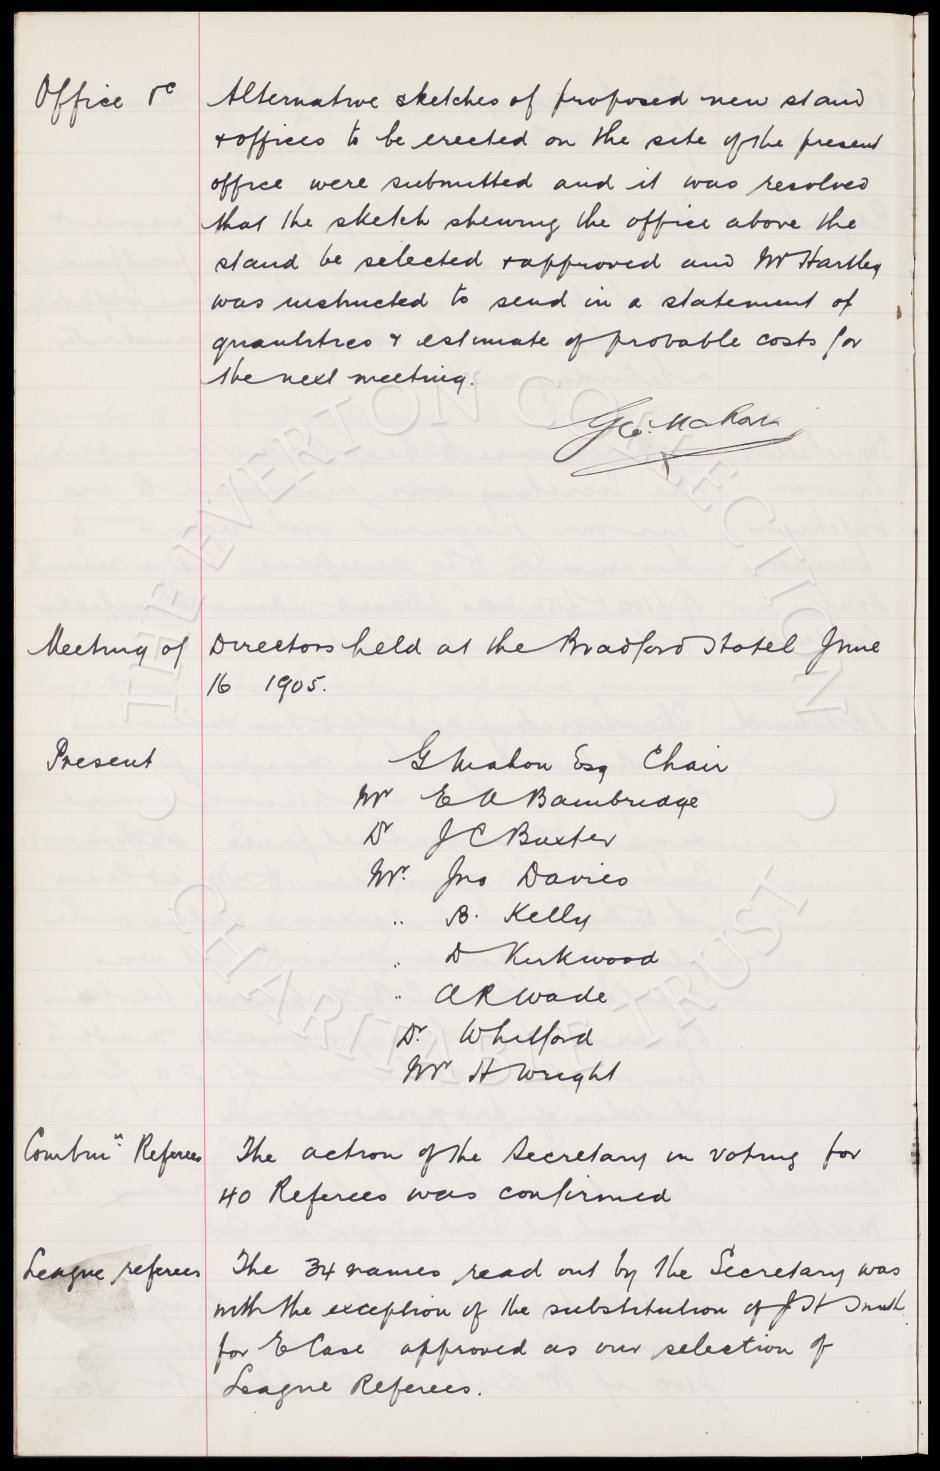 Office &c Alternative sketches of proposed new stand
& offices to be erected on the site of the present
office were submitted and it was resolved
that the sketch shewing the office above the
stand be selected & approved and Mr Hartley
was instructed to send in a statement of
quantities & estimate of probable costs for
the next meeting.
Geo. Mahon
Meeting of Directors held at the Bradford Hotel June
16 1905.
Present G Mahon Esq Chair
Mr E A Bainbridge
Dr J C Baxter
Mr. Jno Davies
" B. Kelly
" D Kirkwood
" A R Wade
Dr. Whitford
Mr H Wright
Combinn. Referees The action of the Secretary in voting for
40 Referees was confirmed
League referees The 34 names read out by the Secretary was
with the exception of the substitution of J H Smith
for E Case approved as our selection of
League Referees.
THE EVERTON COLLECTION
CHARITABLE TRUST